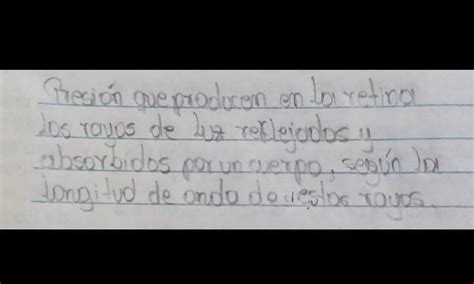 Presión que producem en la retina
los rayos de luz reflejados y
absorbidos por un cuerpo, según la
longitud de onda de estos rayos.